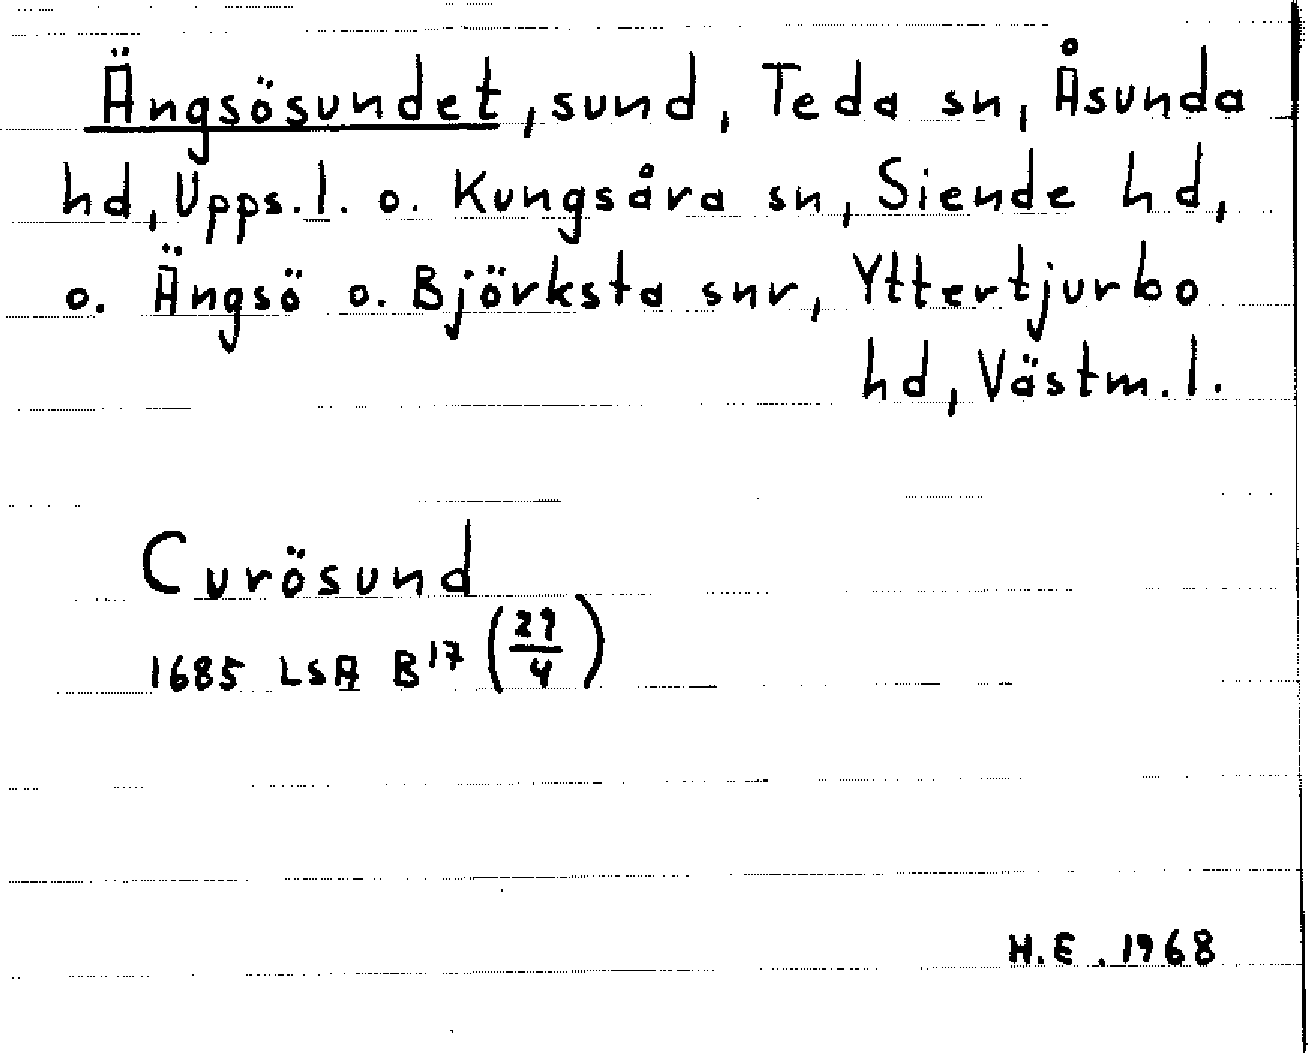 Ängsösundet, sund, Teda sn, Åsunda
hd, Upps.l. o. Kungsåra sn, Siende hd,
o. Ängsö o. Björksta snr, Yttertjurbo
hd, Västm.l.
Curösund
1685 LSA B¹⁷ (29/4)
H.E. 1968